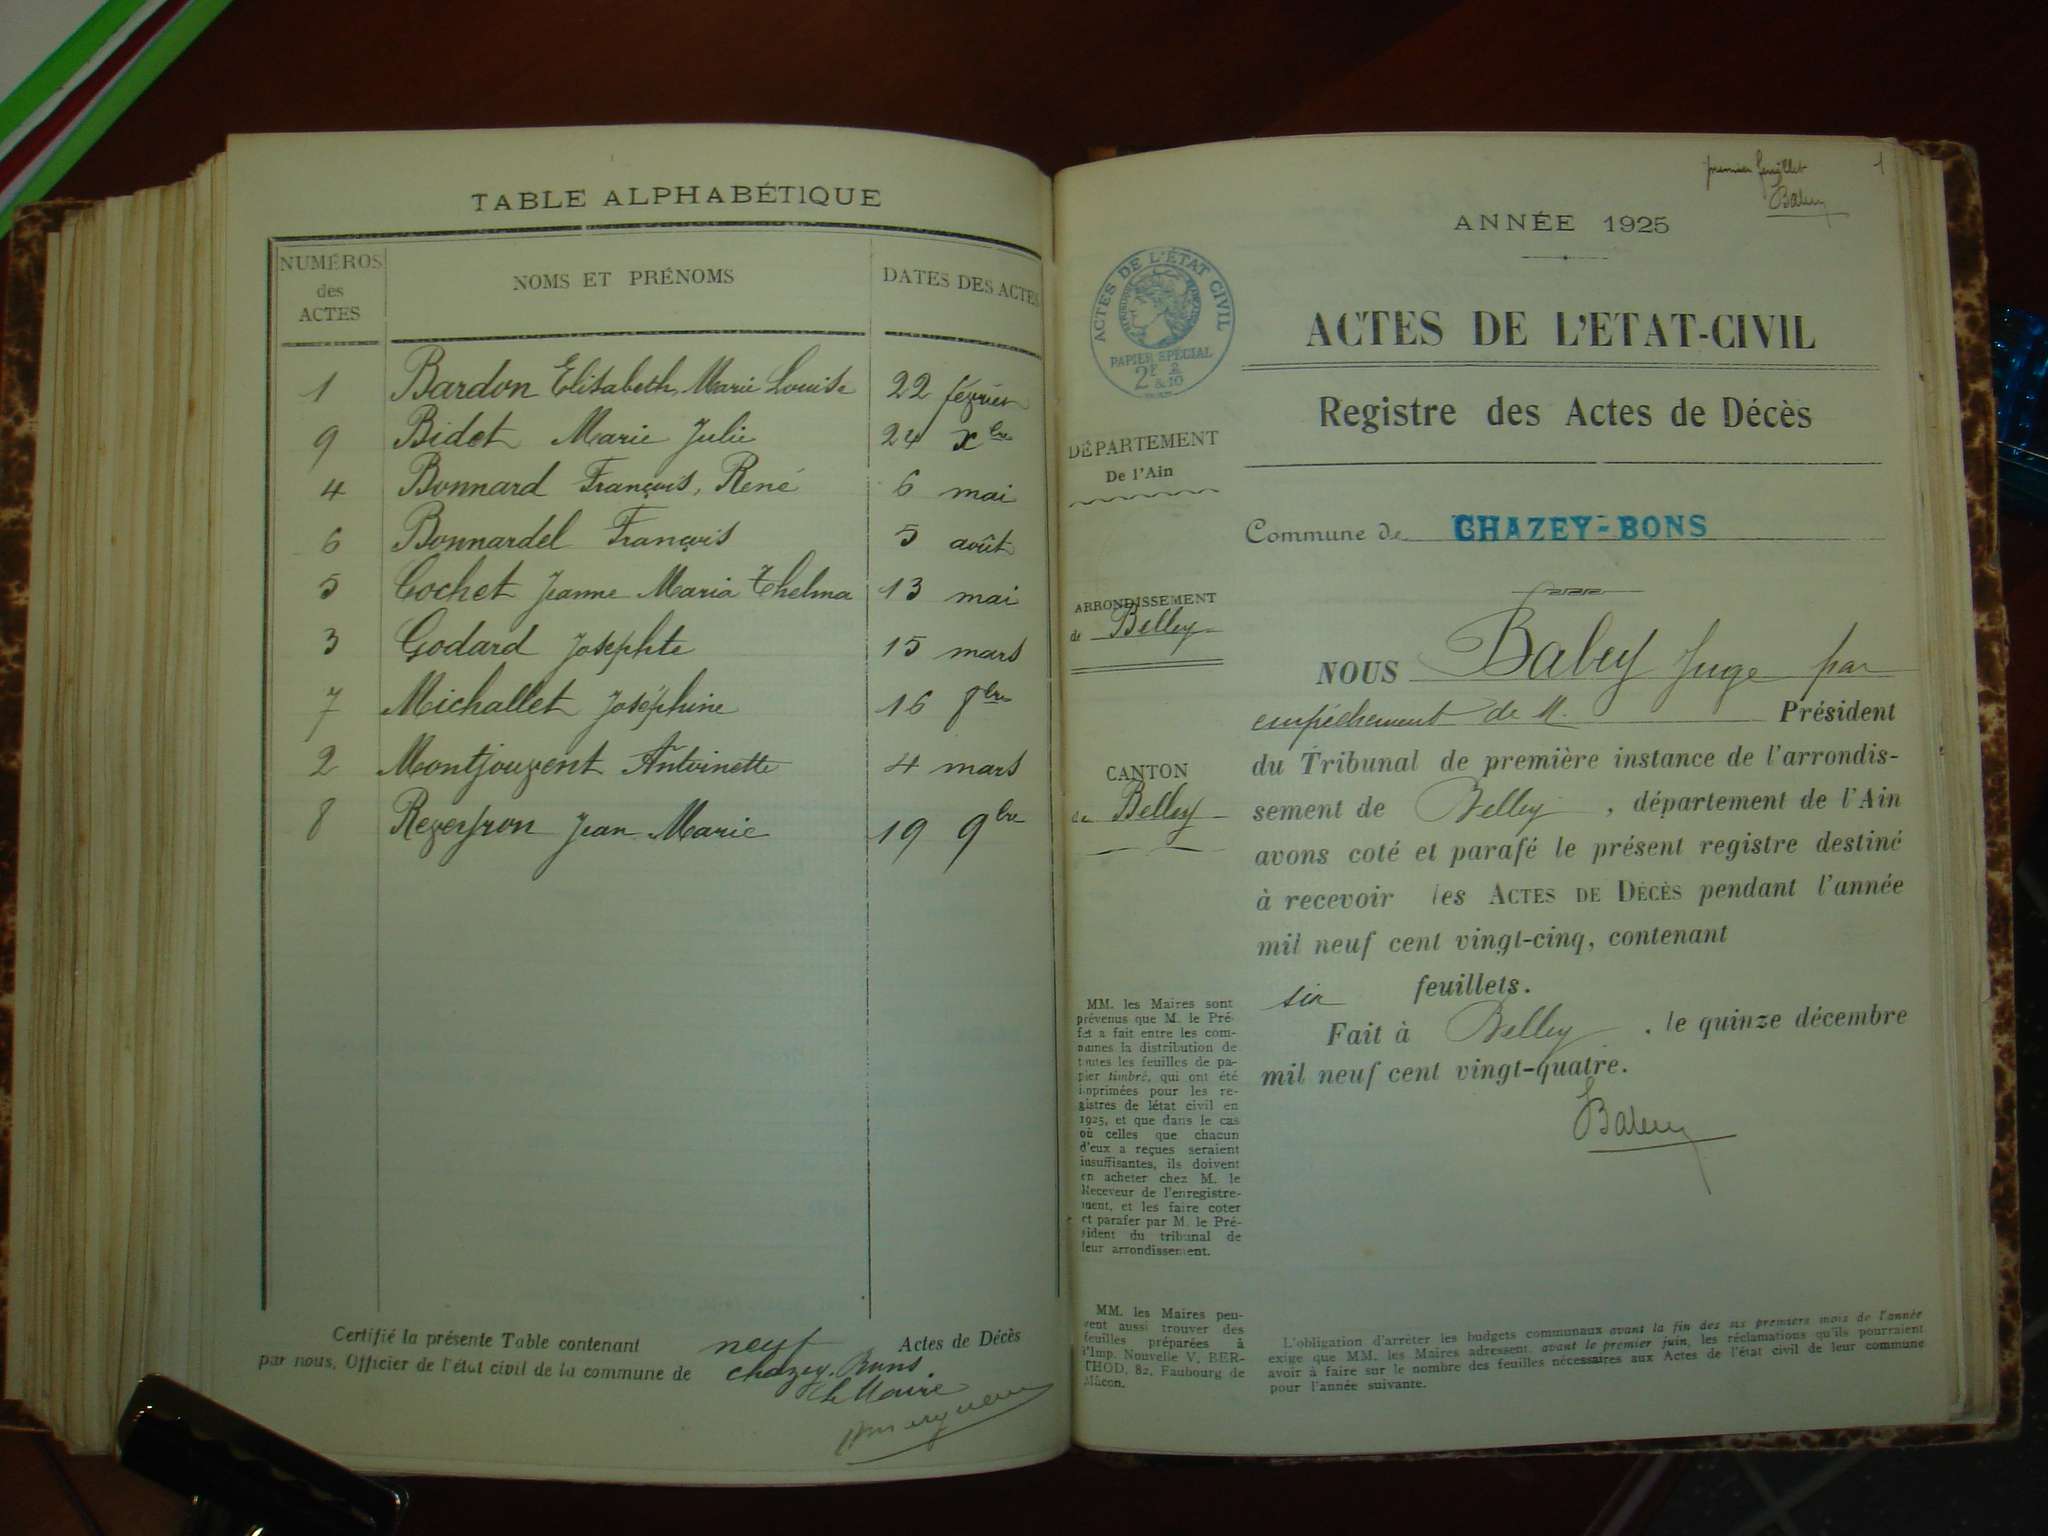 TABLE ALPHABÉTIQUE
NUMÉROS
des
ACTES
NOMS ET PRÉNOMS
DATES DES ACTES
1 Bardon Elisabeth, Marie Louise 22 février
9 Bidet Marie Julie 24 xbre
4 Bonnard François, René 6 mai
6 Bonnardel François 5 août
5 Cochet Jeanne Maria Thelma 13 mai
3 Godard Josephte 15 mars
7 Michallet Joséphine 16 8bre
2 Montjouvent Antoinette 4 mars
8 Reveyron Jean Marie 19 9bre
Certifié la présente Table contenant neuf Actes de Décès
par nous, Officier de l'état civil de la commune de Chazey-Bons
Le Maire
premier feuillet
1
ANNÉE 1925
ACTES DE L'ÉTAT CIVIL
PAPIER SPÉCIAL
2F 2
&10
ACTES DE L'ETAT-CIVIL
Registre des Actes de Décès
DÉPARTEMENT
De l'Ain
Commune de CHAZEY-BONS
ARRONDISSEMENT
de Belley
CANTON
de Belley
NOUS Baley Juge par
empêchement de M. Président
du Tribunal de première instance de l'arrondis-
sement de Belley, département de l'Ain
avons coté et parafé le présent registre destiné
à recevoir les ACTES DE DÉCÈS pendant l'année
mil neuf cent vingt-cinq, contenant
six feuillets.
Fait à Belley, le quinze décembre
mil neuf cent vingt-quatre.
MM. les Maires sont
prévenus que M. le Pré-
fet a fait entre les com-
munes la distribution de
toutes les feuilles de pa-
pier timbré, qui ont été
imprimées pour les re-
gistres de létat civil en
1925, et que dans le cas
où celles que chacun
d'eux a reçues seraient
insuffisantes, ils doivent
en acheter chez M. le
Receveur de l'enregistre-
ment, et les faire coter
et parafer par M. le Pré-
sident du tribunal de
leur arrondissement.
MM. les Maires peu-
vent aussi trouver des
feuilles préparées à
l'Imp. Nouvelle V. BER-
THOD, 82, Faubourg de
Mâcon.
L'obligation d'arrêter les budgets communaux avant la fin des six premiers mois de l'année
exige que MM. les Maires adressent, avant le premier juin, les réclamations qu'ils pourraient
avoir à faire sur le nombre des feuilles nécessaires aux Actes de l'état civil de leur commune
pour l'année suivante.